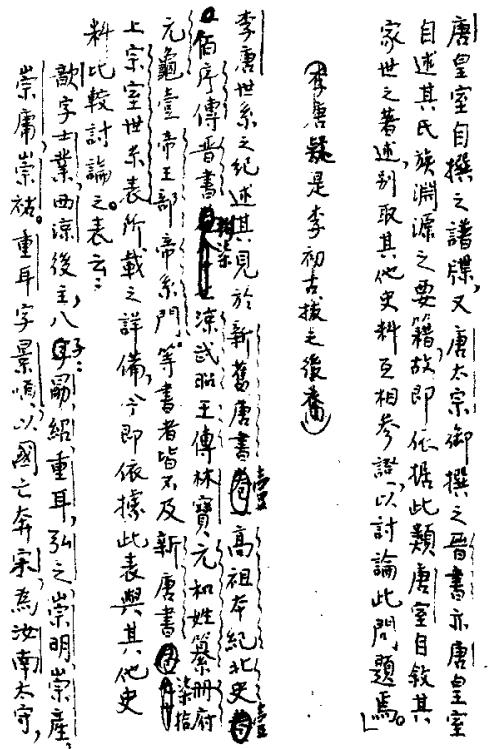 唐皇室自撰之譜牒,又唐太宗御撰之晉書亦唐皇室
自述其氏族淵源之要籍,故即依据此類唐室自敘其
家世之著述,別取其他史料互相參證,以討論此問題焉。」
(李唐疑是李初古拔之後裔)
李唐世系之紀述其見於新舊唐書壹高祖本紀北史壹
佰序傳晉書捌柒涼武昭王傳林寶元和姓纂冊府
元龜壹帝王部帝系門等書者皆不及新唐書柒拾
上宗室世系表所載之詳備,今即依據此表與其他史
料比較討論之。表云:
歆字士業,西涼後主,八子:勗、紹、重耳、弘之、崇明、崇產、
崇庸、崇祐。重耳字景順,以國亡奔宋,為汝南太守,